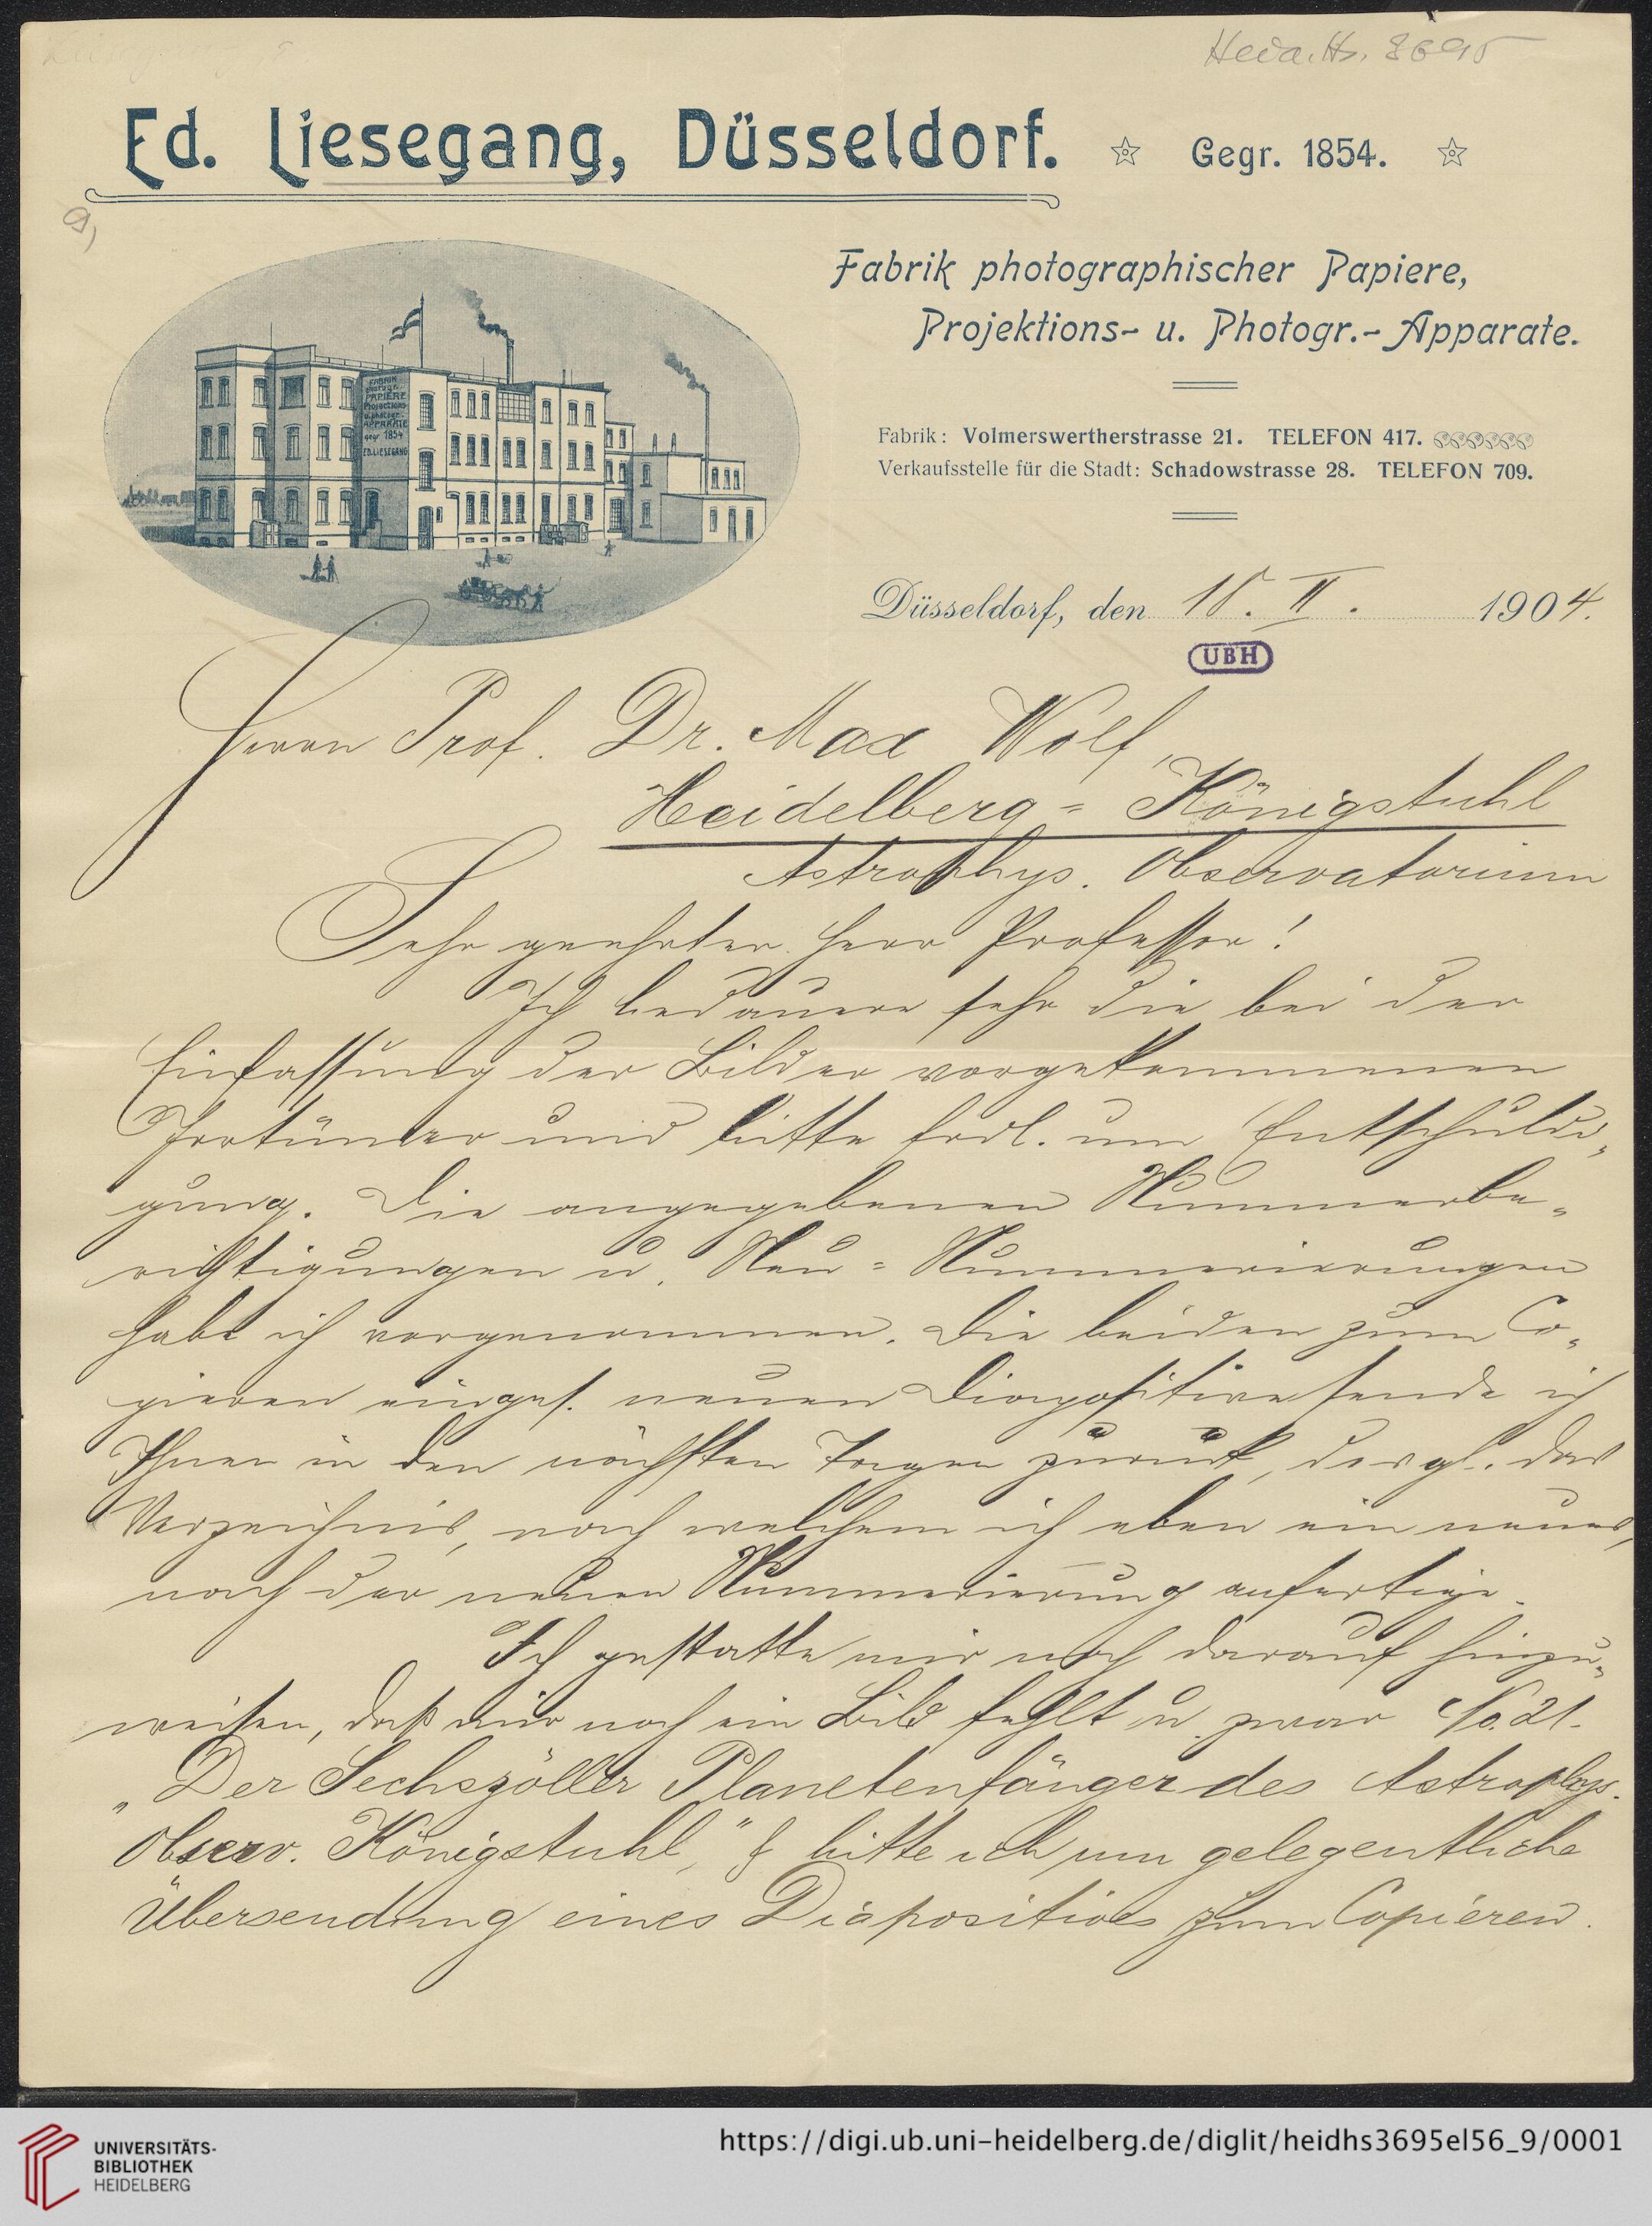 Heid. Hs. 3695
Ed. Liesegang, Düsseldorf. Gegr. 1854.
9,
Fabrik photographischer Papiere,
Projektions- u. Photogr.-Apparate.
FABRIK
photogr.
PAPIERE
Projections
u. photogr.
APPARATE
gegr 1854
ED. LIESEGANG
Fabrik: Volmerswertherstrasse 21. TELEFON 417.
Verkaufsstelle für die Stadt: Schadowstrasse 28. TELEFON 709.
Düsseldorf, den 15. II. 1904.
UBH
Herrn Prof. Dr. Max Wolf,
Heidelberg = Königstuhl
Astrophys. Observatorium
Sehr geehrter Herr Professor!
Ich bedauere sehr die bei der
Einfassung der Bilder vorgekommenen
Irrtümer und bitte frdl. um Entschuldi„
gung. Die angegebenen Nummerbe„
richtigungen u. Neu = Nummerierungen
habe ich vorgenommen. Die beiden zum Co„
pieren einges. neuen Diapositive sende ich
Ihnen in den nächsten Tagen zurück, desgl. das
Verzeichnis, nach welchem ich eben ein neues,
nach der neuen Nummerierung anfertige.
Ich gestatte mir noch darauf hinzu„
weisen, daß mir noch ein Bild fehlt u. zwar No. 21.
„Der Sechszöller Planetenfänger des Astrophys.
Observ. Königstuhl," & bitte ich um gelegentliche
Übersendung eines Diapositives zum Copieren.
UNIVERSITÄTS-
BIBLIOTHEK
HEIDELBERG
https://digi.ub.uni-heidelberg.de/diglit/heidhs3695el56_9/0001